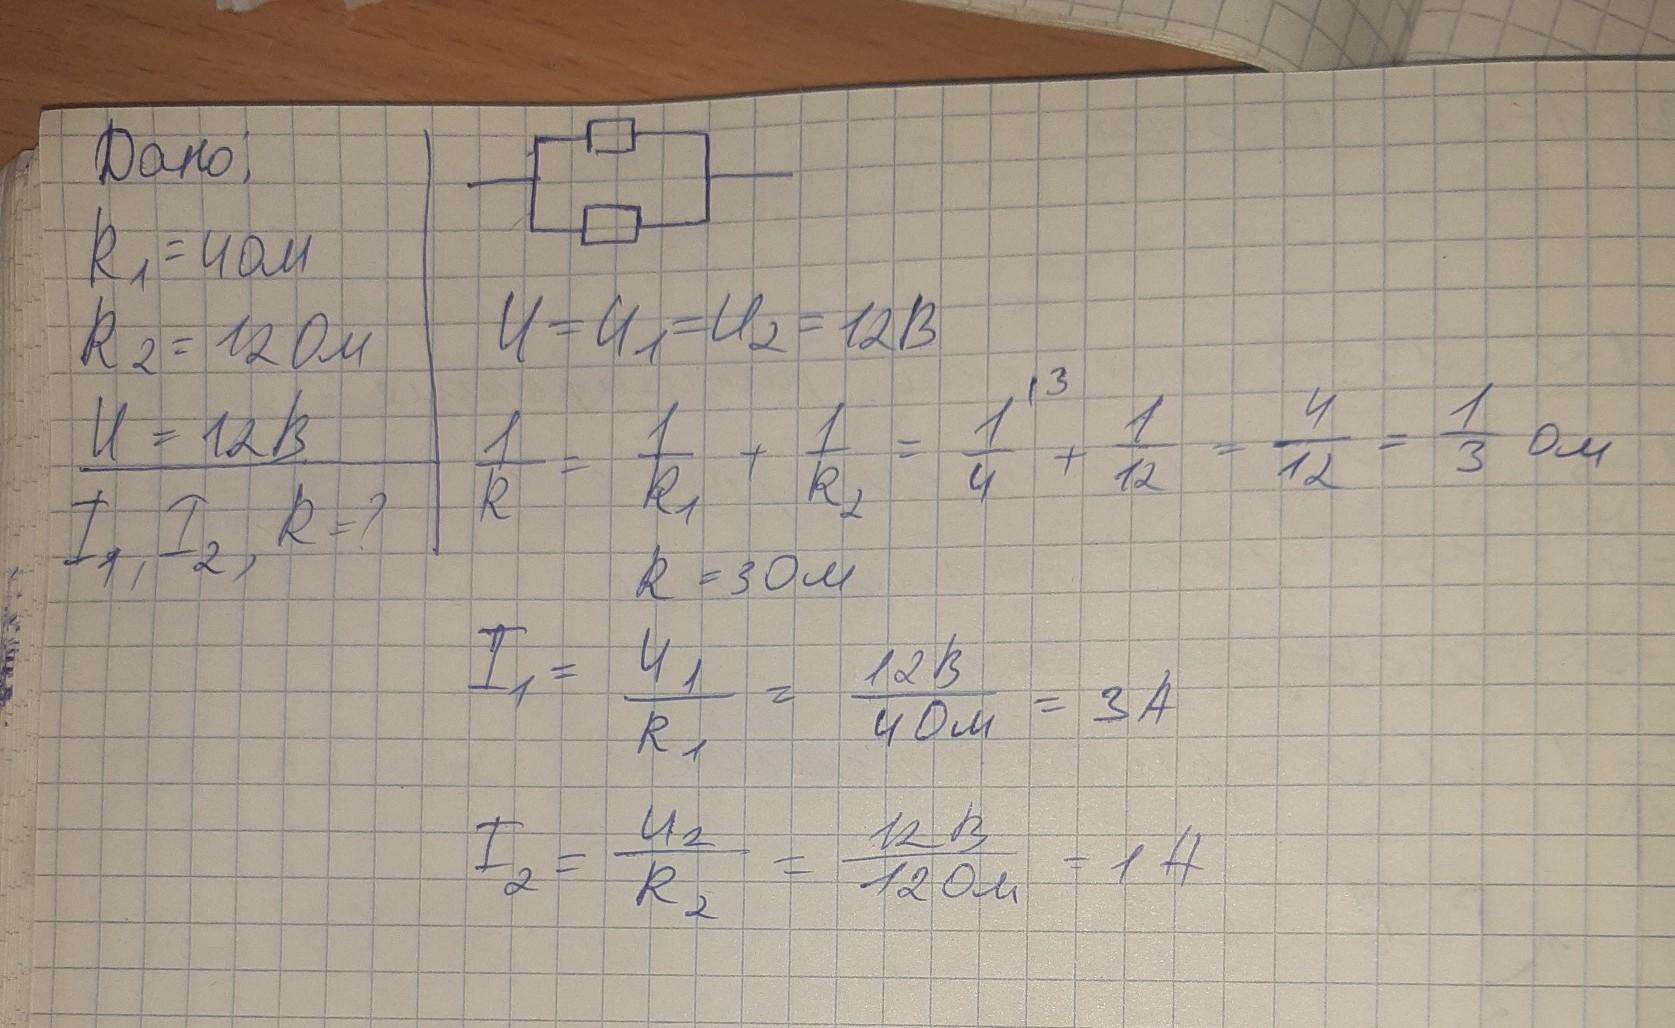 Дано:
R₁ = 4 Ом
R₂ = 12 Ом
U = 12 В
I₁, I₂, R = ?
U = U₁ = U₂ = 12 В
1/R = 1/R₁ + 1/R₂ = 1/4 ⁽³ + 1/12 = 4/12 = 1/3 Ом
R = 3 Ом
I₁ = U₁/R₁ = 12 В/4 Ом = 3 А
I₂ = U₂/R₂ = 12 В/12 Ом = 1 А